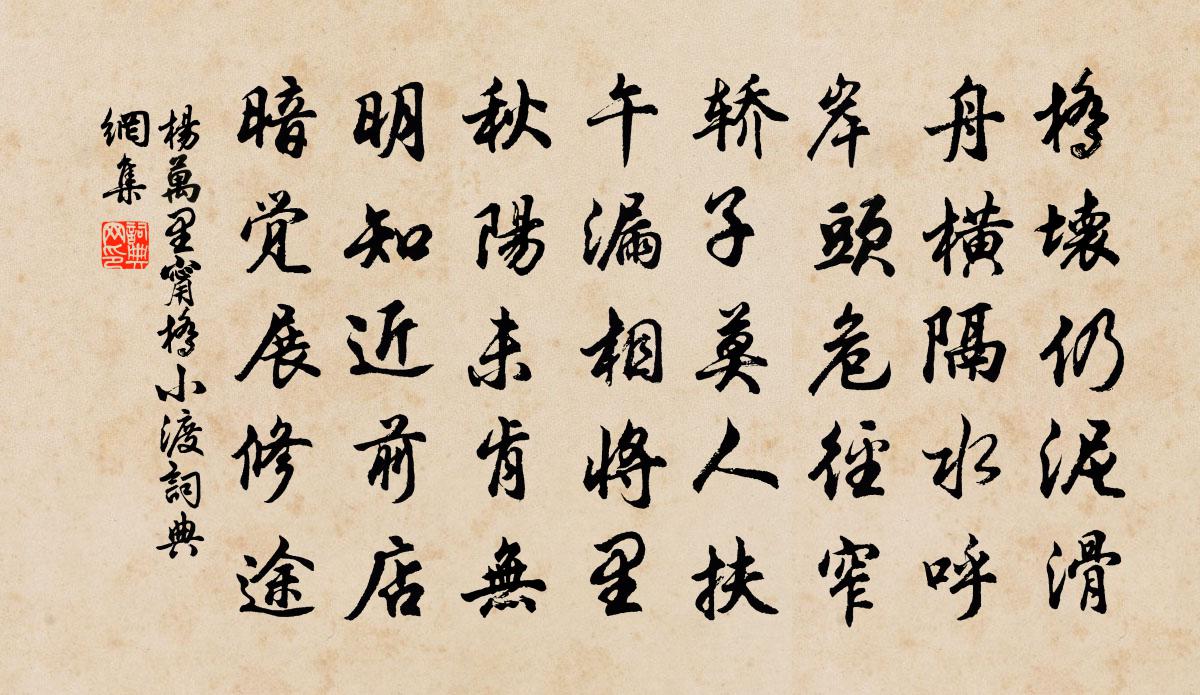 橋壊仍泥滑
舟橫隔水呼
岸頭危徑窄
轿子莫人扶
午漏相將里
秋陽未肯無
明知近前店
暗觉展修途
楊萬里甯橋小渡詞典
網集
詞典
网印